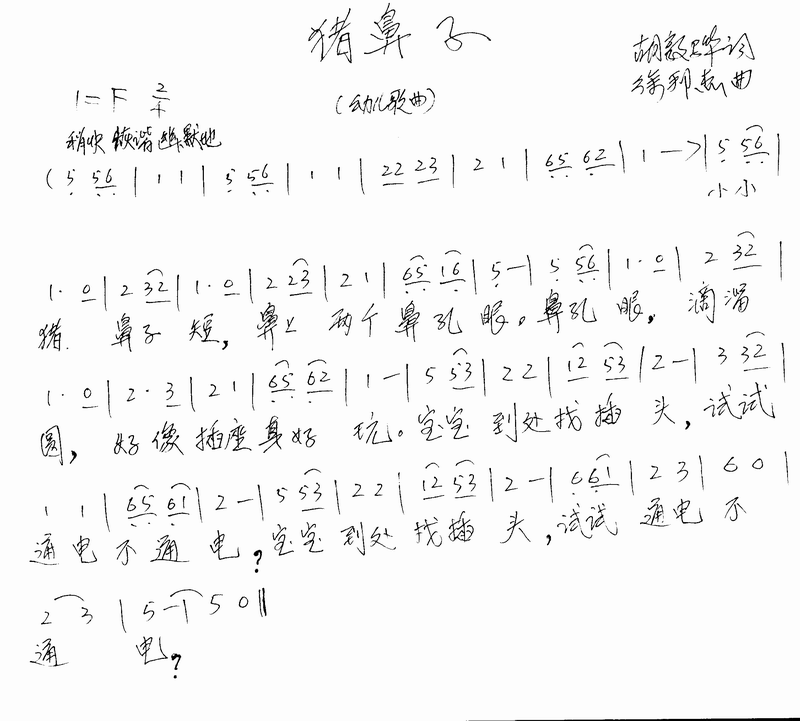 猪鼻子
词
曲
1=F 2/4
(幼儿歌曲)
稍快 诙谐幽默地
(5 56 | 1 1 | 5 56 | 1 1 | 22 23 | 2 1 | 65 62 | 1 —> | 5 56 |
小小
1· 0 | 2 32 | 1· 0 | 2 23 | 2 1 | 65 16 | 5 — | 5 56 | 1· 0 | 2 32 |
猪 鼻子 短, 鼻上 两个 鼻孔 眼。鼻孔 眼, 滴溜
1· 0 | 2· 3 | 2 1 | 65 62 | 1 — | 5 53 | 2 2 | 12 53 | 2 — | 3 32 |
圆, 好像 插座真好 玩。宝宝 到处找插 头, 试试
1 1 | 65 61 | 2 — | 5 53 | 2 2 | 12 53 | 2 — | 6 61 | 2 3 | 6 0 |
通电不通 电?宝宝 到处 找插 头,试试 通电 不
2 3 | 5 — | 5 0 ‖
通 电?